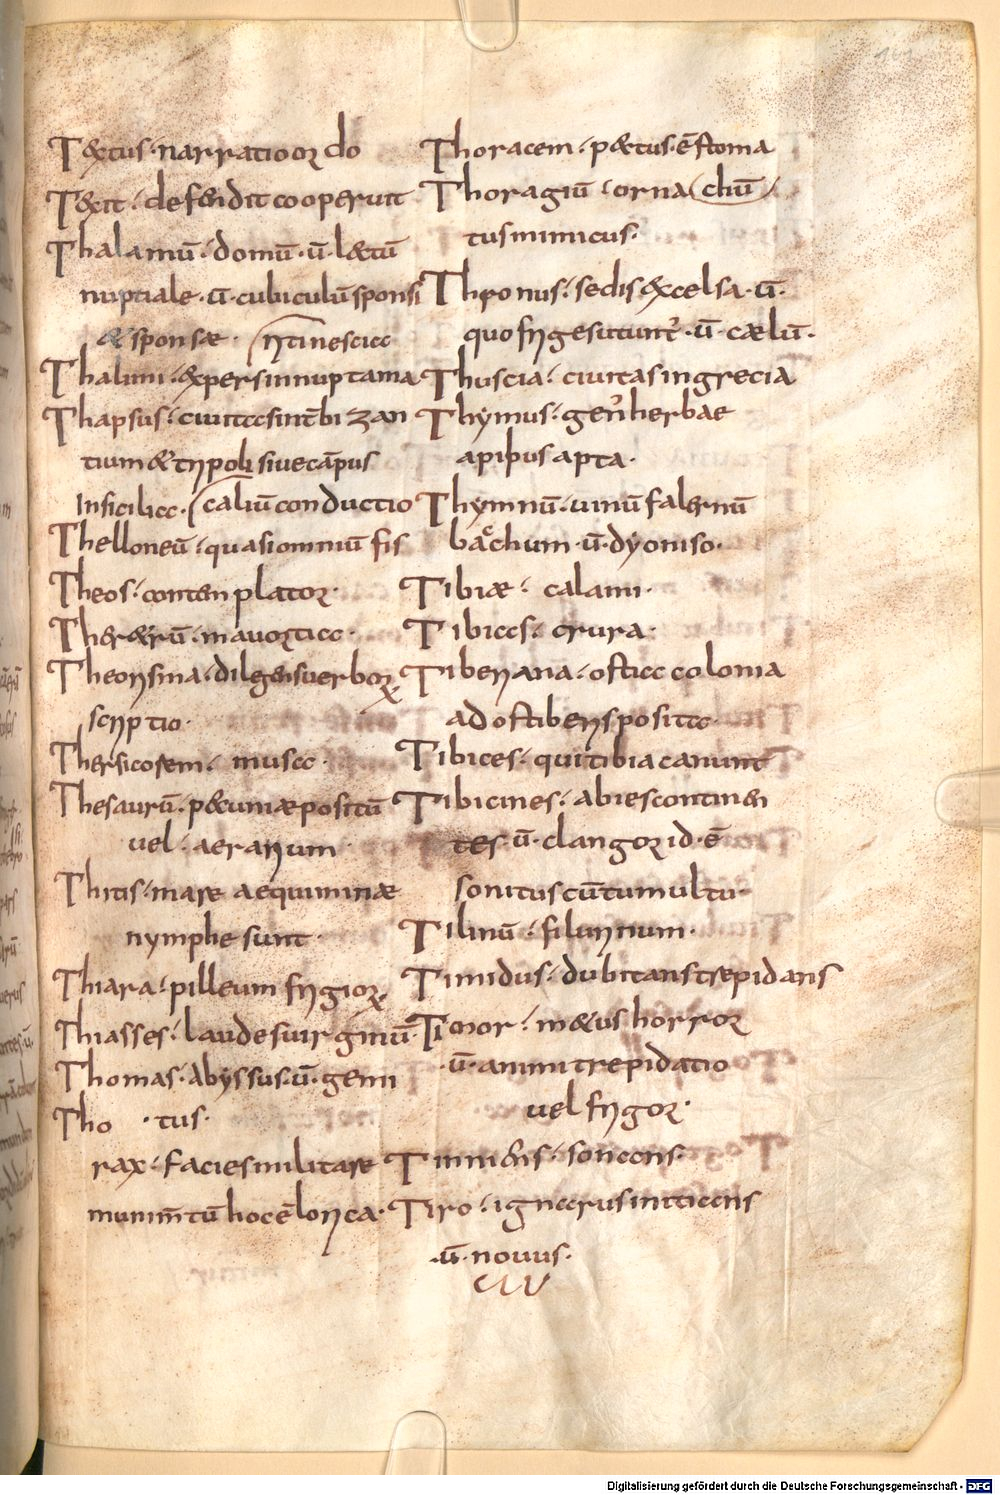 T&tus · narratio ordo
T&it · defendit cooperuit
Thalamū · domū · ū · l&tū
nuptiale · ū · cubiculū sponsi
& sponsae · 
Thalmi · expers innupta ma
Thapsus · ciuitas int bi zan
tium & tripoli siue cāpus
In sicilia · caliū conductio
Thelloneū · quasi omniū fis
Theos · contemplator ·
Ther&rū · mauortia ·
Theorisma · diligens uerborꝝ
scriptio ·
Thersicorem · musa ·
Thesaurū · p&cuniae positū
uel · aerarium ·
Thitis · mare aequiminae
nymphe sunt ·
Thiara · pilleum frigiorꝝ
Thiasses · laudes uirginū
Thomas · Abyssus · ū · gemi
Tho · tus ·
rax · facies militare
munimtū hoc ē lorica ·
Thoracem · p&tus · ē stoma
Thoragiū · orna (chū
tus mimicus ·
Thronus · sedis excelsa · ū ·
quo friges · ū · caelū ·
Thuscia · ciuitas in grecia
Thymus · gen herbae
apibus apta ·
Thymnū · uinū falernū
bachum · ū · dyoniso ·
Tibiae · calami ·
Tibias · crura ·
Tiberiana · ostia colonia
ad os tiberis posita ·
Tibices · qui tibia canunt
Tibicines · abies continen
tes · ū · clangor id · ē
sonitus cū tumultu
Tilinū · filurinum ·
Timidus · dubitans trepidans
Timor · m&us horror
· ū · animi trepidatio
uel frigor ·
Tinniens · sonans ·
Tiro · ignarus initians
· ū · nouus ·
Digitalisierung gefördert durch die Deutsche Forschungsgemeinschaft - DFG